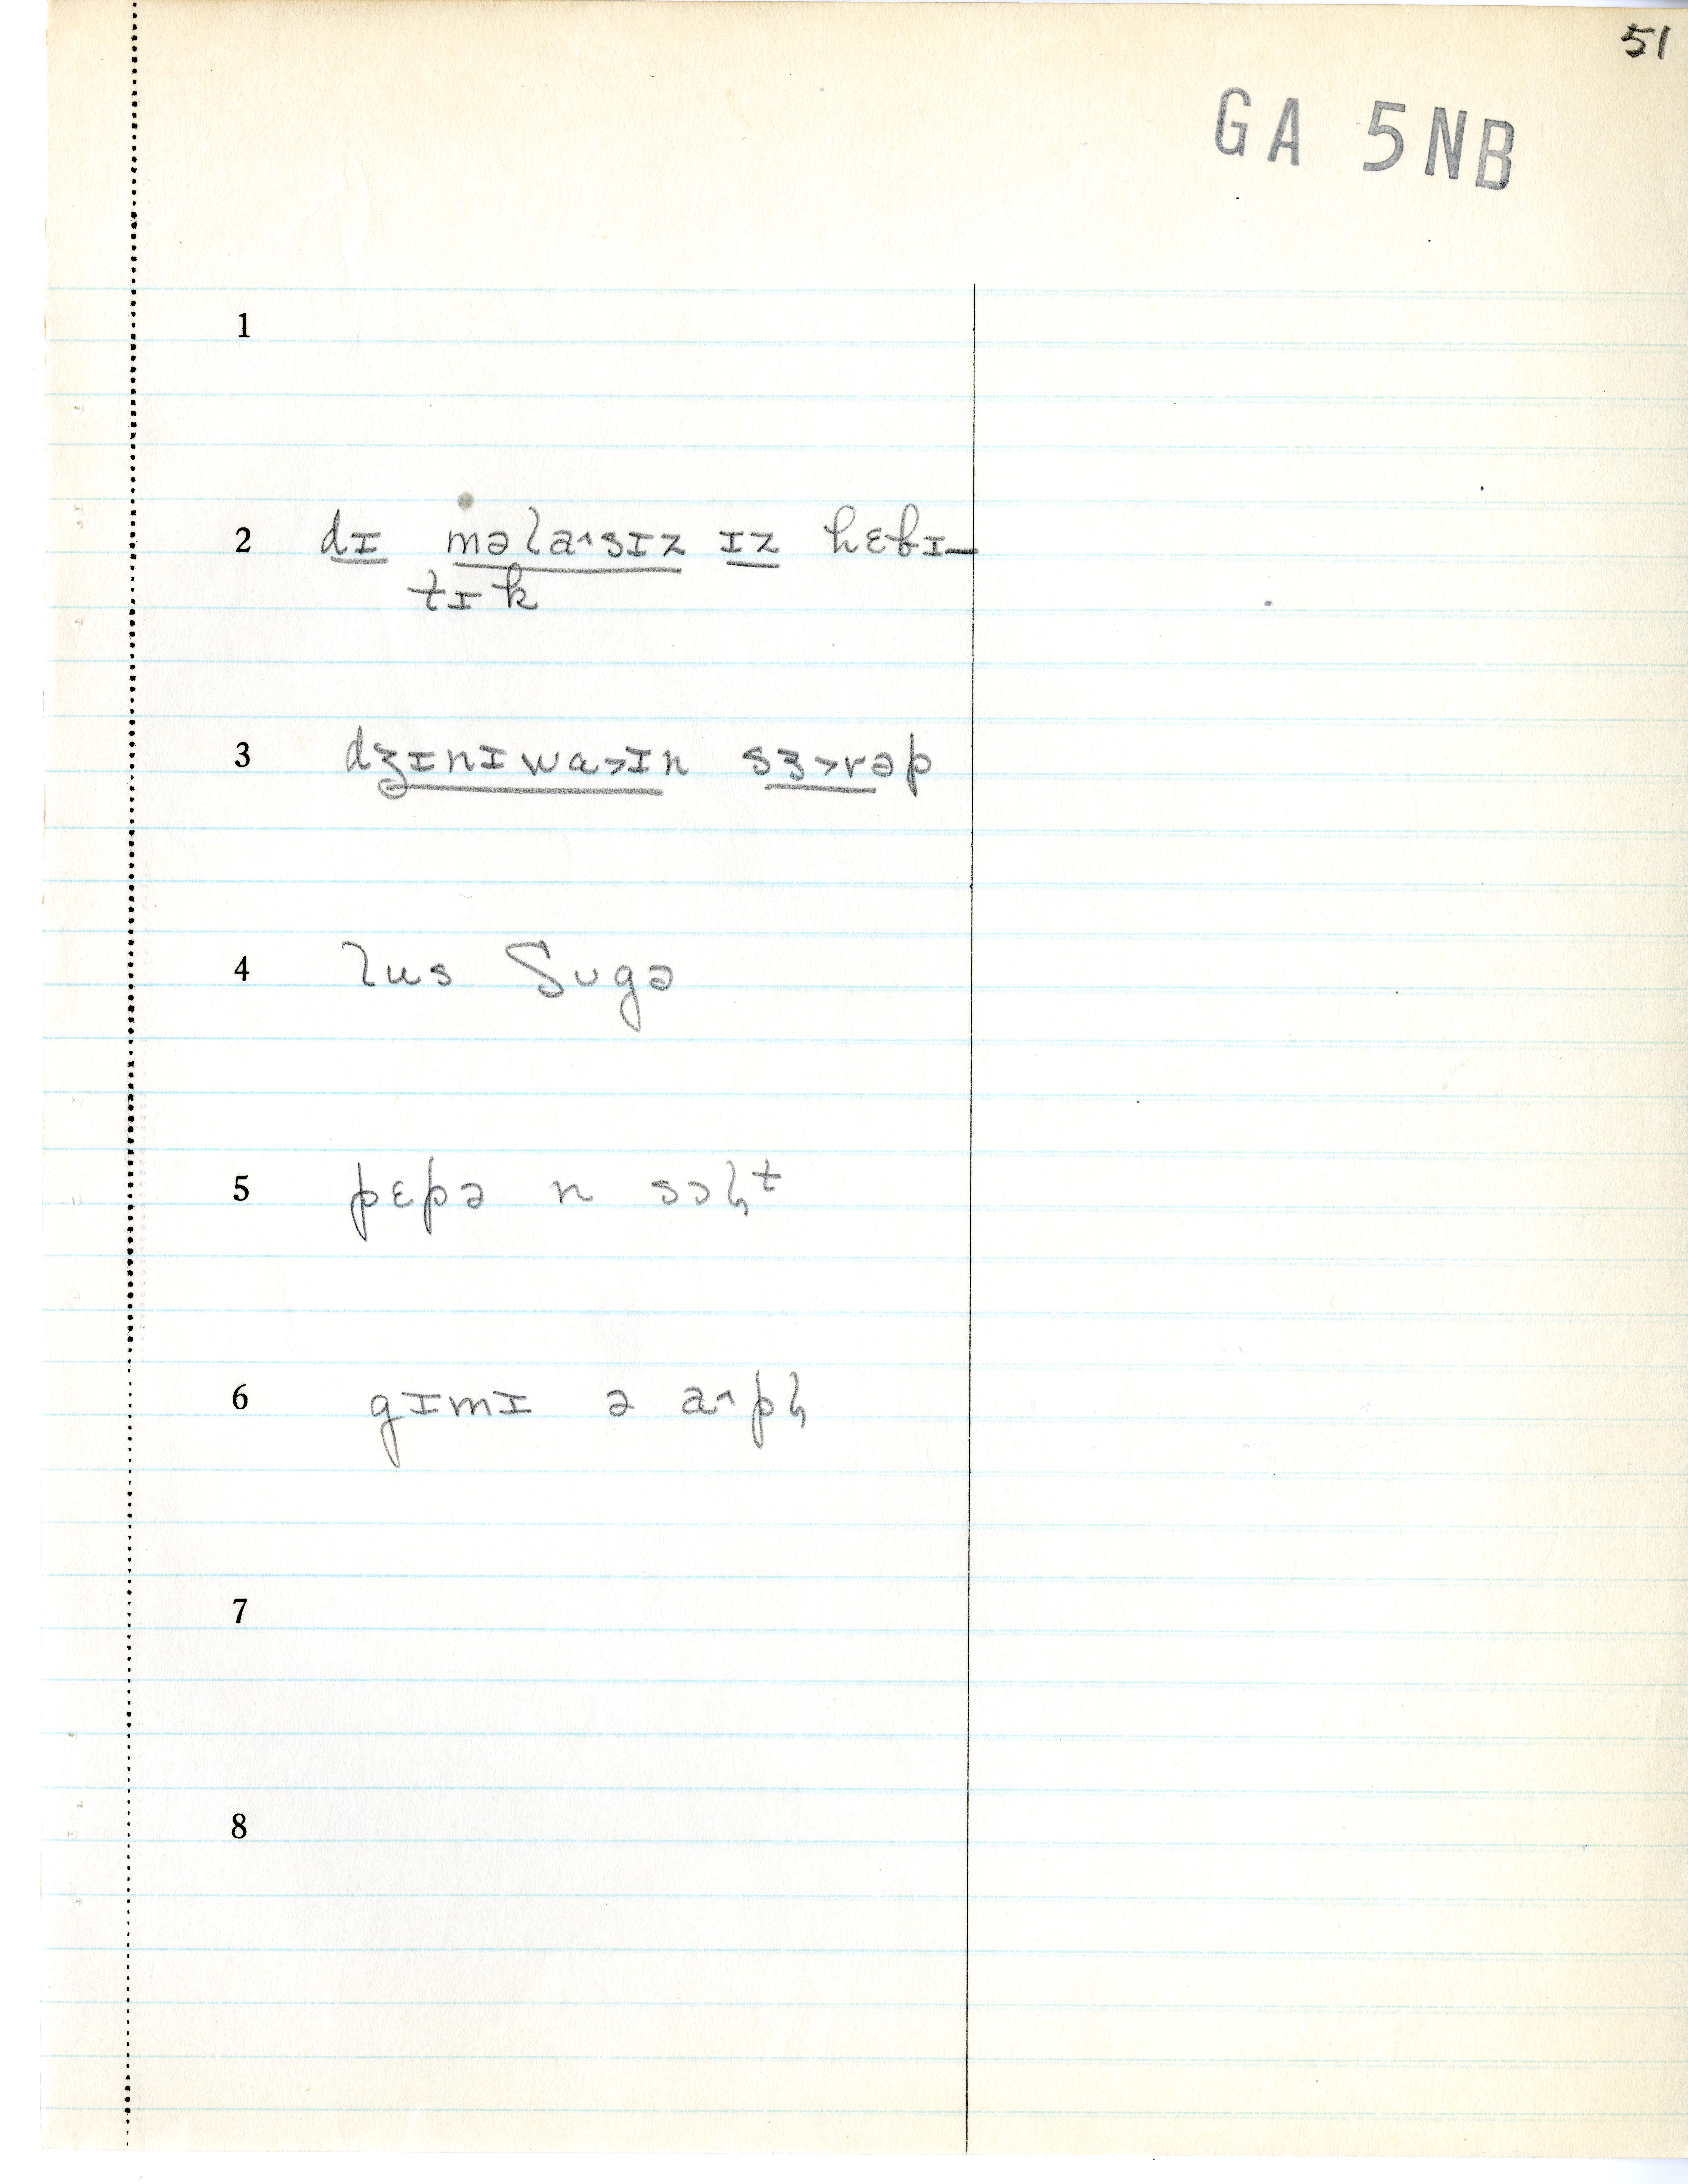 51
GA 5NB
1
2 dɪ məlaˆsɪz ɪz hɛbɪ–
tɪk
3 dʒɪnɪwa˃ɪn sɜ˃rəp
4 lus ʃugə
5 pɛpə n sɔl̡ᵗ
6 gɪmɪ ə aˆpl̡
7
8